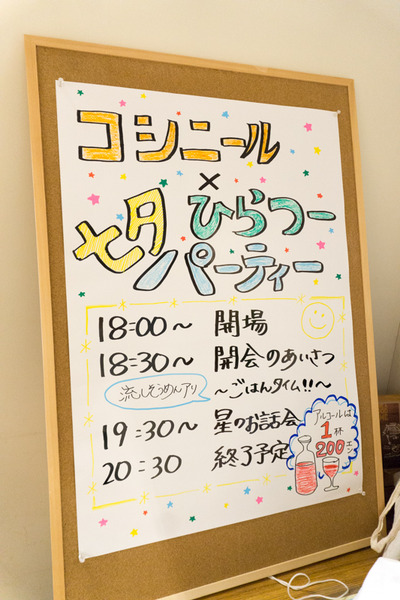 コシニール
×
七夕 ひらつー
パーティー
18:00〜 開場
18:30〜 開会のあいさつ
流しそうめんアリ 〜ごはんタイム!!〜
19:30〜 星のお話会
20:30 終了予定
アルコールは
1杯
200エン